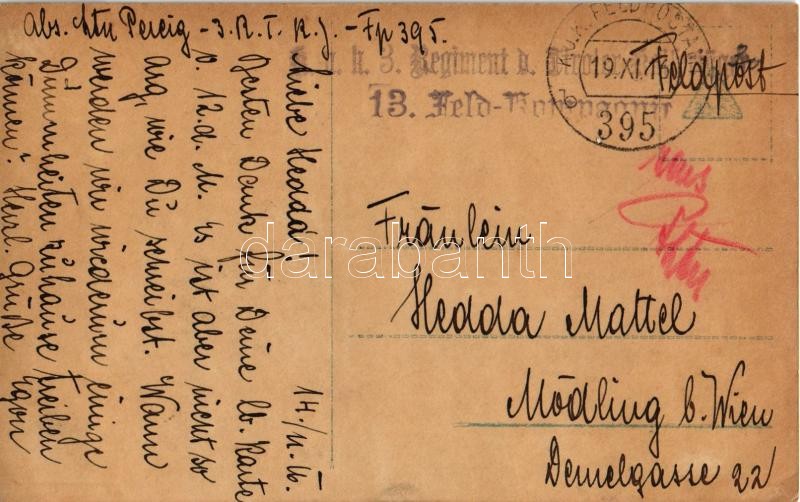 Abs. Ltn Perčig - 3. R. T. K. J. - Fp 395.
K. u. k. 3. Regiment d. Tiroler
13. Feld-Kompagnie
K.U.K. FELDPOSTAMT
19. XI. 16
b
395
Feldpost
aus
Fräulein
Hedda Mattel
Mödling b. Wien
Demelgasse 22
14./11. 16.
Liebe Hedda!
Besten Dank für Deine lb. Karte
v. 12. d. M. Es ist aber nicht so
arg, wie Du schreibst. Wann
werden wir wiederum einige
Dummheiten zuhause treiben
können? Herzl. Grüße
Egon
darabanth